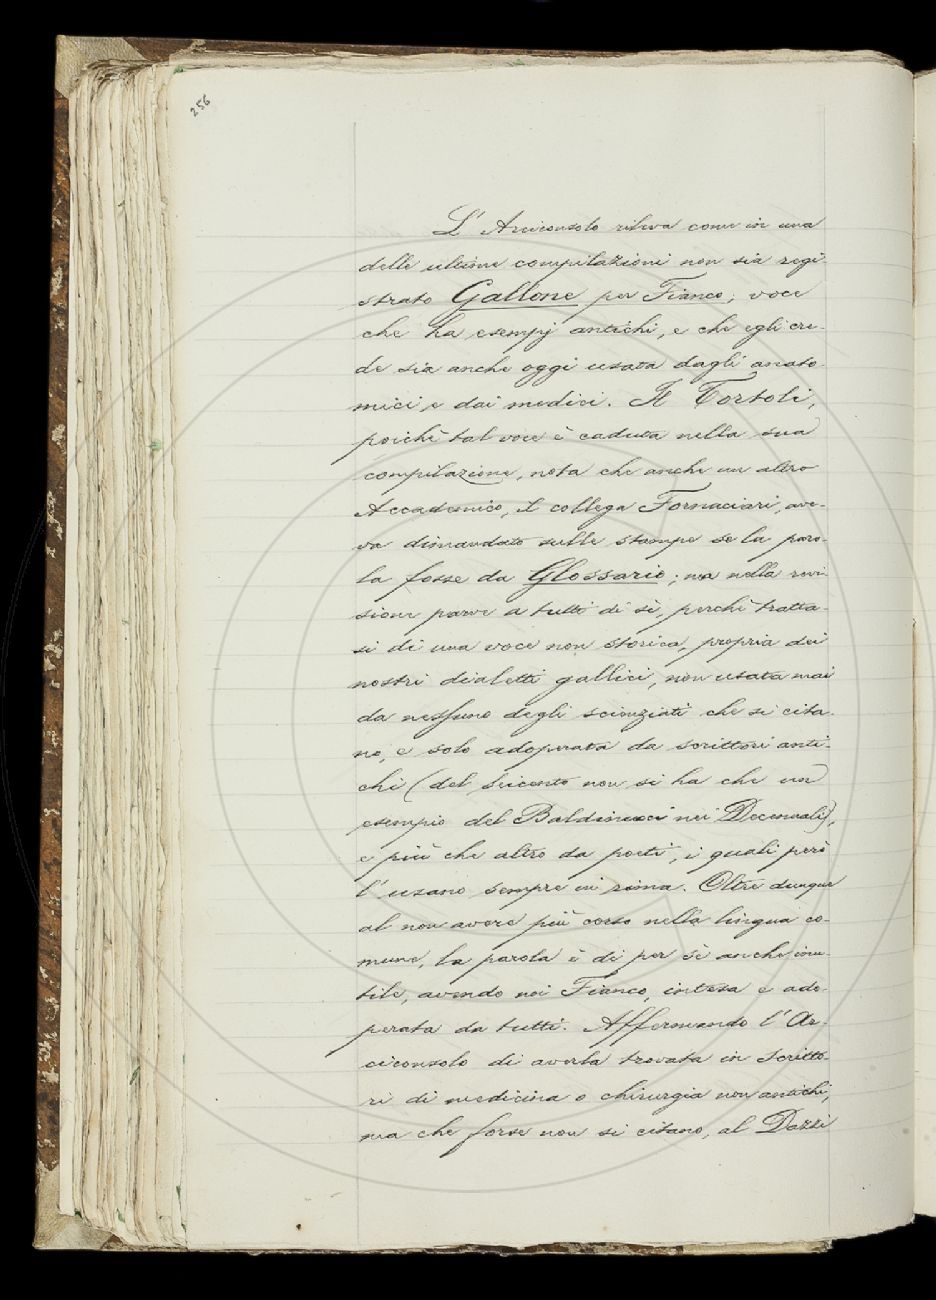 256
L' Arciconsolo rileva come in una
delle ultime compilazioni non sia regi-
strato Gallone per Fianco; voce
che ha esempj antichi, e che egli cre-
de sia anche oggi usata dagli anato-
mici e dai medici. Il Tortoli,
poichè tal voce è caduta nella sua
compilazione, nota che anche un altro
Accademico, il collega Fornaciari, ave-
va dimandato sulle stampe se la paro-
la fosse da Glossario; ma nella revi-
sione parve a tutti di sì, perchè tratta-
si di una voce non storica, propria dei
nostri dialetti gallici, non usata mai
da nessuno degli scienziati che si cita-
no, e solo adoperata da scrittori anti-
chi (del seicento non si ha che un
esempio del Baldinucci nei Decennali),
e più che altro da poeti, i quali però
l' usano sempre in rima. Oltre dunque
al non avere più corso nella lingua co-
mune, la parola è di per sè anche inu-
tile, avendo noi Fianco, intesa e ado-
perata da tutti. Affermando l' Ar-
ciconsolo di averla trovata in scritto-
ri di medicina o chirurgia non antichi,
ma che forse non si citano, al Dazzi